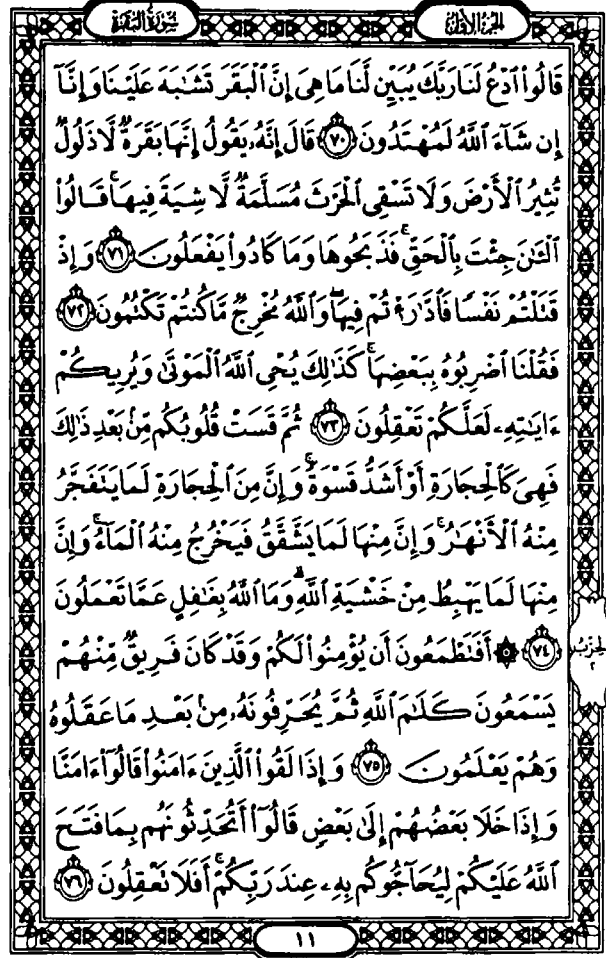 الجزء الأول
سورة البقرة
قَالُوا۟ ٱدْعُ لَنَا رَبَّكَ يُبَيِّن لَّنَا مَا هِىَ إِنَّ ٱلْبَقَرَ تَشَٰبَهَ عَلَيْنَا وَإِنَّآ
إِن شَآءَ ٱللَّهُ لَمُهْتَدُونَ ٧٠ قَالَ إِنَّهُۥ يَقُولُ إِنَّهَا بَقَرَةٌ لَّا ذَلُولٌ
تُثِيرُ ٱلْأَرْضَ وَلَا تَسْقِى ٱلْحَرْثَ مُسَلَّمَةٌ لَّا شِيَةَ فِيهَا ۚ قَالُوا۟
ٱلْـَٰٔنَ جِئْتَ بِٱلْحَقِّ ۚ فَذَبَحُوهَا وَمَا كَادُوا۟ يَفْعَلُونَ ٧١ وَإِذْ
قَتَلْتُمْ نَفْسًا فَٱدَّٰرَْٰٔتُمْ فِيهَا ۖ وَٱللَّهُ مُخْرِجٌ مَّا كُنتُمْ تَكْتُمُونَ ٧٢
فَقُلْنَا ٱضْرِبُوهُ بِبَعْضِهَا ۚ كَذَٰلِكَ يُحْىِ ٱللَّهُ ٱلْمَوْتَىٰ وَيُرِيكُمْ
ءَايَٰتِهِۦ لَعَلَّكُمْ تَعْقِلُونَ ٧٣ ثُمَّ قَسَتْ قُلُوبُكُم مِّنۢ بَعْدِ ذَٰلِكَ
فَهِىَ كَٱلْحِجَارَةِ أَوْ أَشَدُّ قَسْوَةً ۚ وَإِنَّ مِنَ ٱلْحِجَارَةِ لَمَا يَتَفَجَّرُ
مِنْهُ ٱلْأَنْهَٰرُ ۚ وَإِنَّ مِنْهَا لَمَا يَشَّقَّقُ فَيَخْرُجُ مِنْهُ ٱلْمَآءُ ۚ وَإِنَّ
مِنْهَا لَمَا يَهْبِطُ مِنْ خَشْيَةِ ٱللَّهِ ۗ وَمَا ٱللَّهُ بِغَٰفِلٍ عَمَّا تَعْمَلُونَ
٧٤ ۞ أَفَتَطْمَعُونَ أَن يُؤْمِنُوا۟ لَكُمْ وَقَدْ كَانَ فَرِيقٌ مِّنْهُمْ
الحزب ٢
يَسْمَعُونَ كَلَٰمَ ٱللَّهِ ثُمَّ يُحَرِّفُونَهُۥ مِنۢ بَعْدِ مَا عَقَلُوهُ
وَهُمْ يَعْلَمُونَ ٧٥ وَإِذَا لَقُوا۟ ٱلَّذِينَ ءَامَنُوا۟ قَالُوٓا۟ ءَامَنَّا
وَإِذَا خَلَا بَعْضُهُمْ إِلَىٰ بَعْضٍ قَالُوٓا۟ أَتُحَدِّثُونَهُم بِمَا فَتَحَ
ٱللَّهُ عَلَيْكُمْ لِيُحَآجُّوكُم بِهِۦ عِندَ رَبِّكُمْ ۚ أَفَلَا تَعْقِلُونَ ٧٦
١١